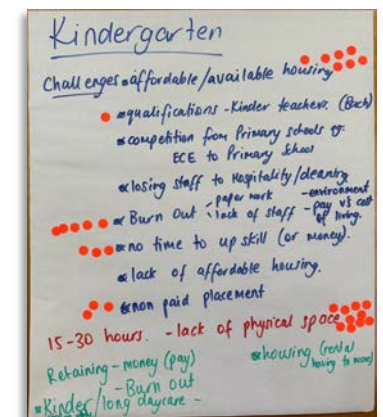 Kindergarten
Challenges affordable/available housing
qualifications - Kinder teachers. (Bach)
competition from Primary schools eg.
ECE to Primary School
losing staff to Hospitality/cleaning
- paper work - environment
Burn Out : lack of staff - pay vs cost of living.
no time to up skill (or money).
lack of affordable housing.
non paid placement
15-30 hours. - lack of physical space
Retaining - money (pay)
housing (rental having to move)
- Burn out
Kinder/long daycare -